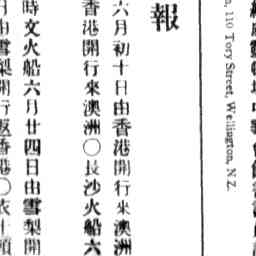 110 Tory Street, Wellington, N.Z.
報
六月初十日由香港開行來澳洲
香港開行來澳洲〇長沙火船六
時文火船六月廿四日由雪梨開
由雪梨開行返香港〇衣士頓